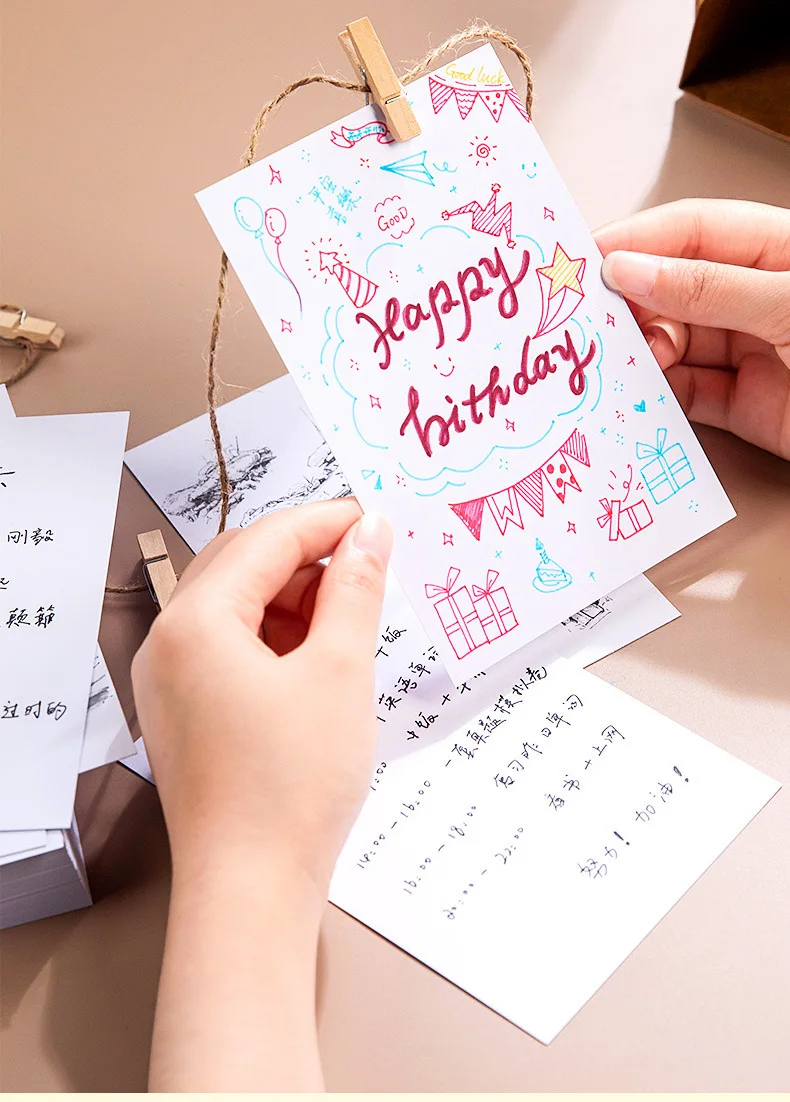 Good luck
GOOD
Happy
bithday
刚毅
过时的
午饭
英语单
午饭 +
14:00 - 16:00 一套真题模拟卷
16:00 - 18:00 复习昨日单词
20:00 - 22:00 看书 + 上网
努力! 加油!